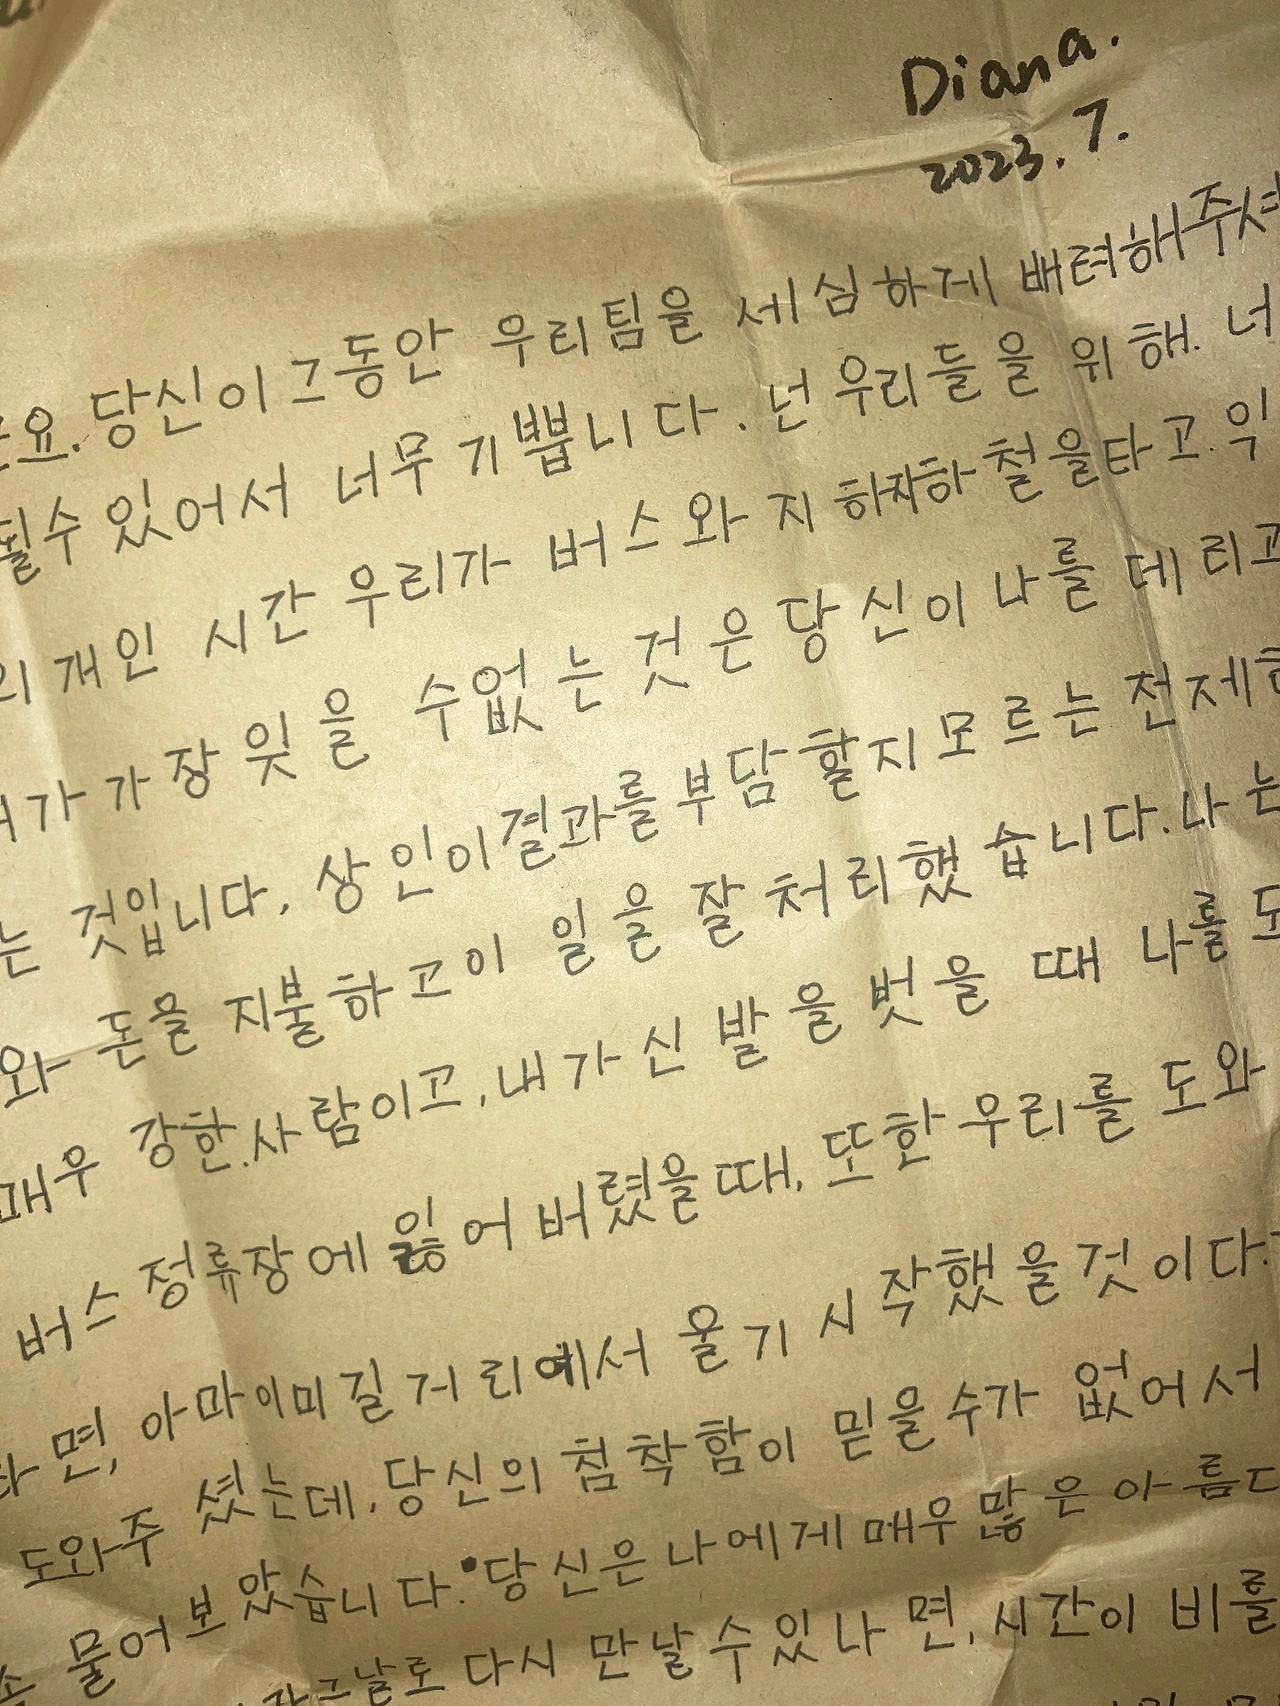 Diana.
2023. 7.
요. 당신이 그동안 우리팀을 세심하게 배려해주셔
될수 있어서 너무 기쁩니다. 넌 우리들을 위해. 너
개인 시간 우리가 버스와 지하 철을타고. 잊
가 가장 잊을 수없는 것은 당신이 나를 데리고
는 것입니다. 상인이결과를부담할지 모르는 전제
와 돈을 지불하고이 일을 잘 처리했습니다. 나는
매우 강한.사람이고, 내가신발을 벗을 때 나를 도
버스 정류장에 잃어버렸을때, 또한 우리를 도와
면, 아마이미길거리에서 울기 시작했을것이다.
도와주셨는데, 당신의 침착함이 믿을수가 없어서
물어보았습니다. 당신은 나에게 매우 많은 아름다
그날로 다시 만날수있나면, 시간이 비를